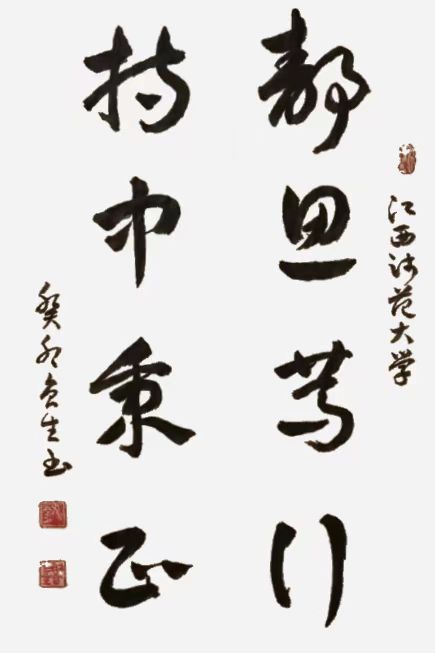 江西师范大学
静思笃行
持中秉正
癸卯生书